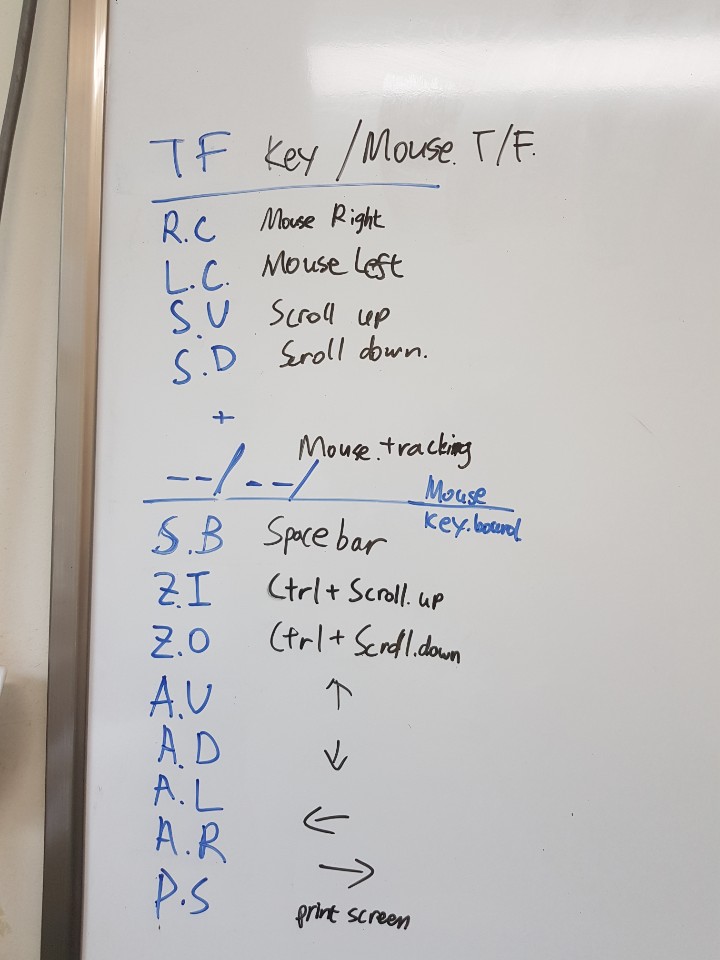 TF Key /Mouse. T/F.
R.C Mouse Right
L.C. Mouse Left
S.U Scroll up
S.D Scroll down.
+
--/--/ Mouse.tracking
Mouse
Key.board
S.B Space bar
Z.I Ctrl + Scroll.up
Z.O Ctrl + Scroll.down
A.U ↑
A.D ↓
A.L ←
A.R →
P.S print screen